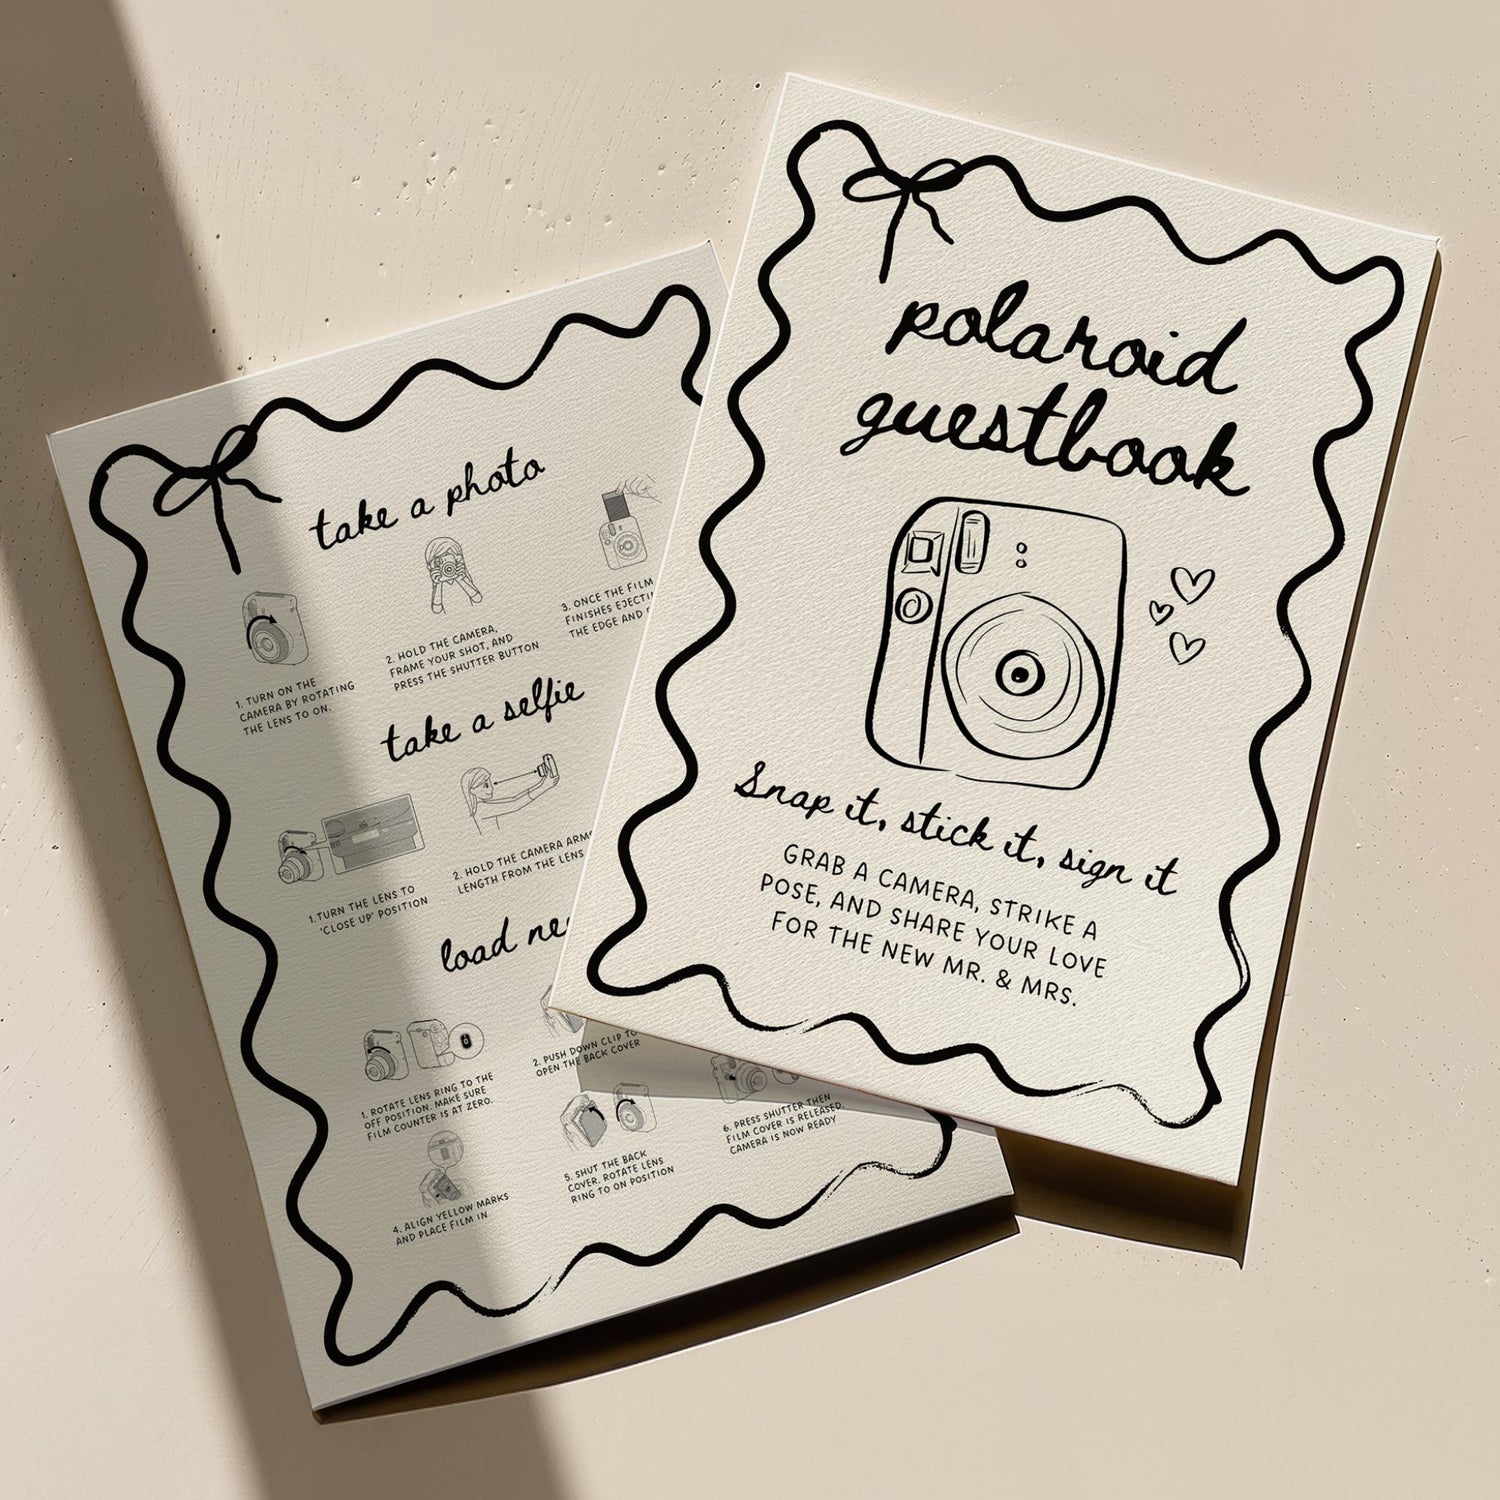 take a photo
1. TURN ON THE
CAMERA BY ROTATING
THE LENS TO ON.
2. HOLD THE CAMERA,
FRAME YOUR SHOT, AND
PRESS THE SHUTTER BUTTON
3. ONCE THE FILM
FINISHES
THE EDGE AND
take a selfie
1.TURN THE LENS TO
'CLOSE UP' POSITION
2. HOLD THE CAMERA ARM
LENGTH FROM THE LENS
load
1. ROTATE LENS RING TO THE
OFF POSITION. MAKE SURE
FILM COUNTER IS AT ZERO.
2. PUSH DOWN CLIP TO
OPEN THE BACK COVER
4. ALIGN YELLOW MARKS
AND PLACE FILM IN
5. SHUT THE BACK
COVER. ROTATE LENS
RING TO ON POSITION
6. PRESS SHUTTER THEN
FILM COVER IS RELEASED.
CAMERA IS NOW READY
polaroid
guestbook
Snap it, stick it, sign it
GRAB A CAMERA, STRIKE A
POSE, AND SHARE YOUR LOVE
FOR THE NEW MR. & MRS.